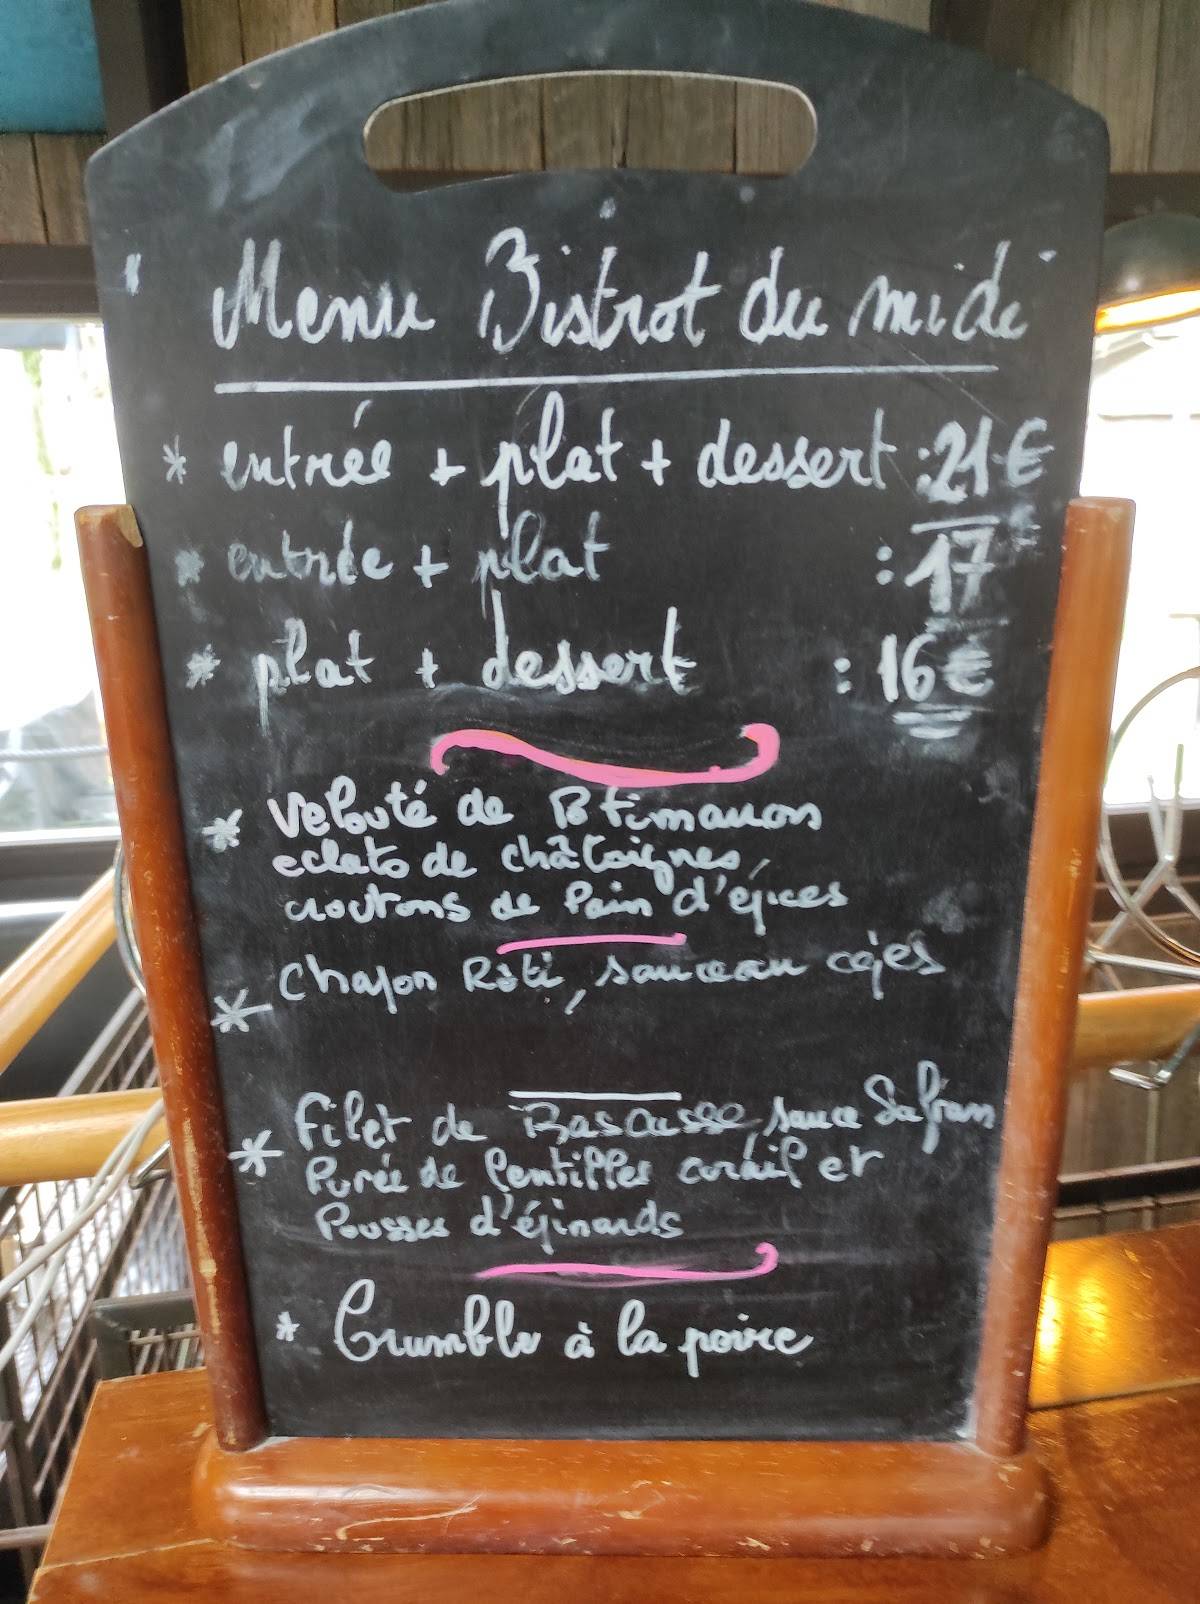 Menu Bistrot du midi
* entrée + plat + dessert : 21 €
* entrée + plat : 17 €
* plat + dessert : 16 €
* Velouté de Btimauon
eclats de châtaignes,
croutons de Pain d'épices
* Chapon Rôti, sauce au cèpes
* Filet de Rascasse, sauce Safran
Purée de lentilles corail et
Pousses d'épinards
* Crumble à la poire